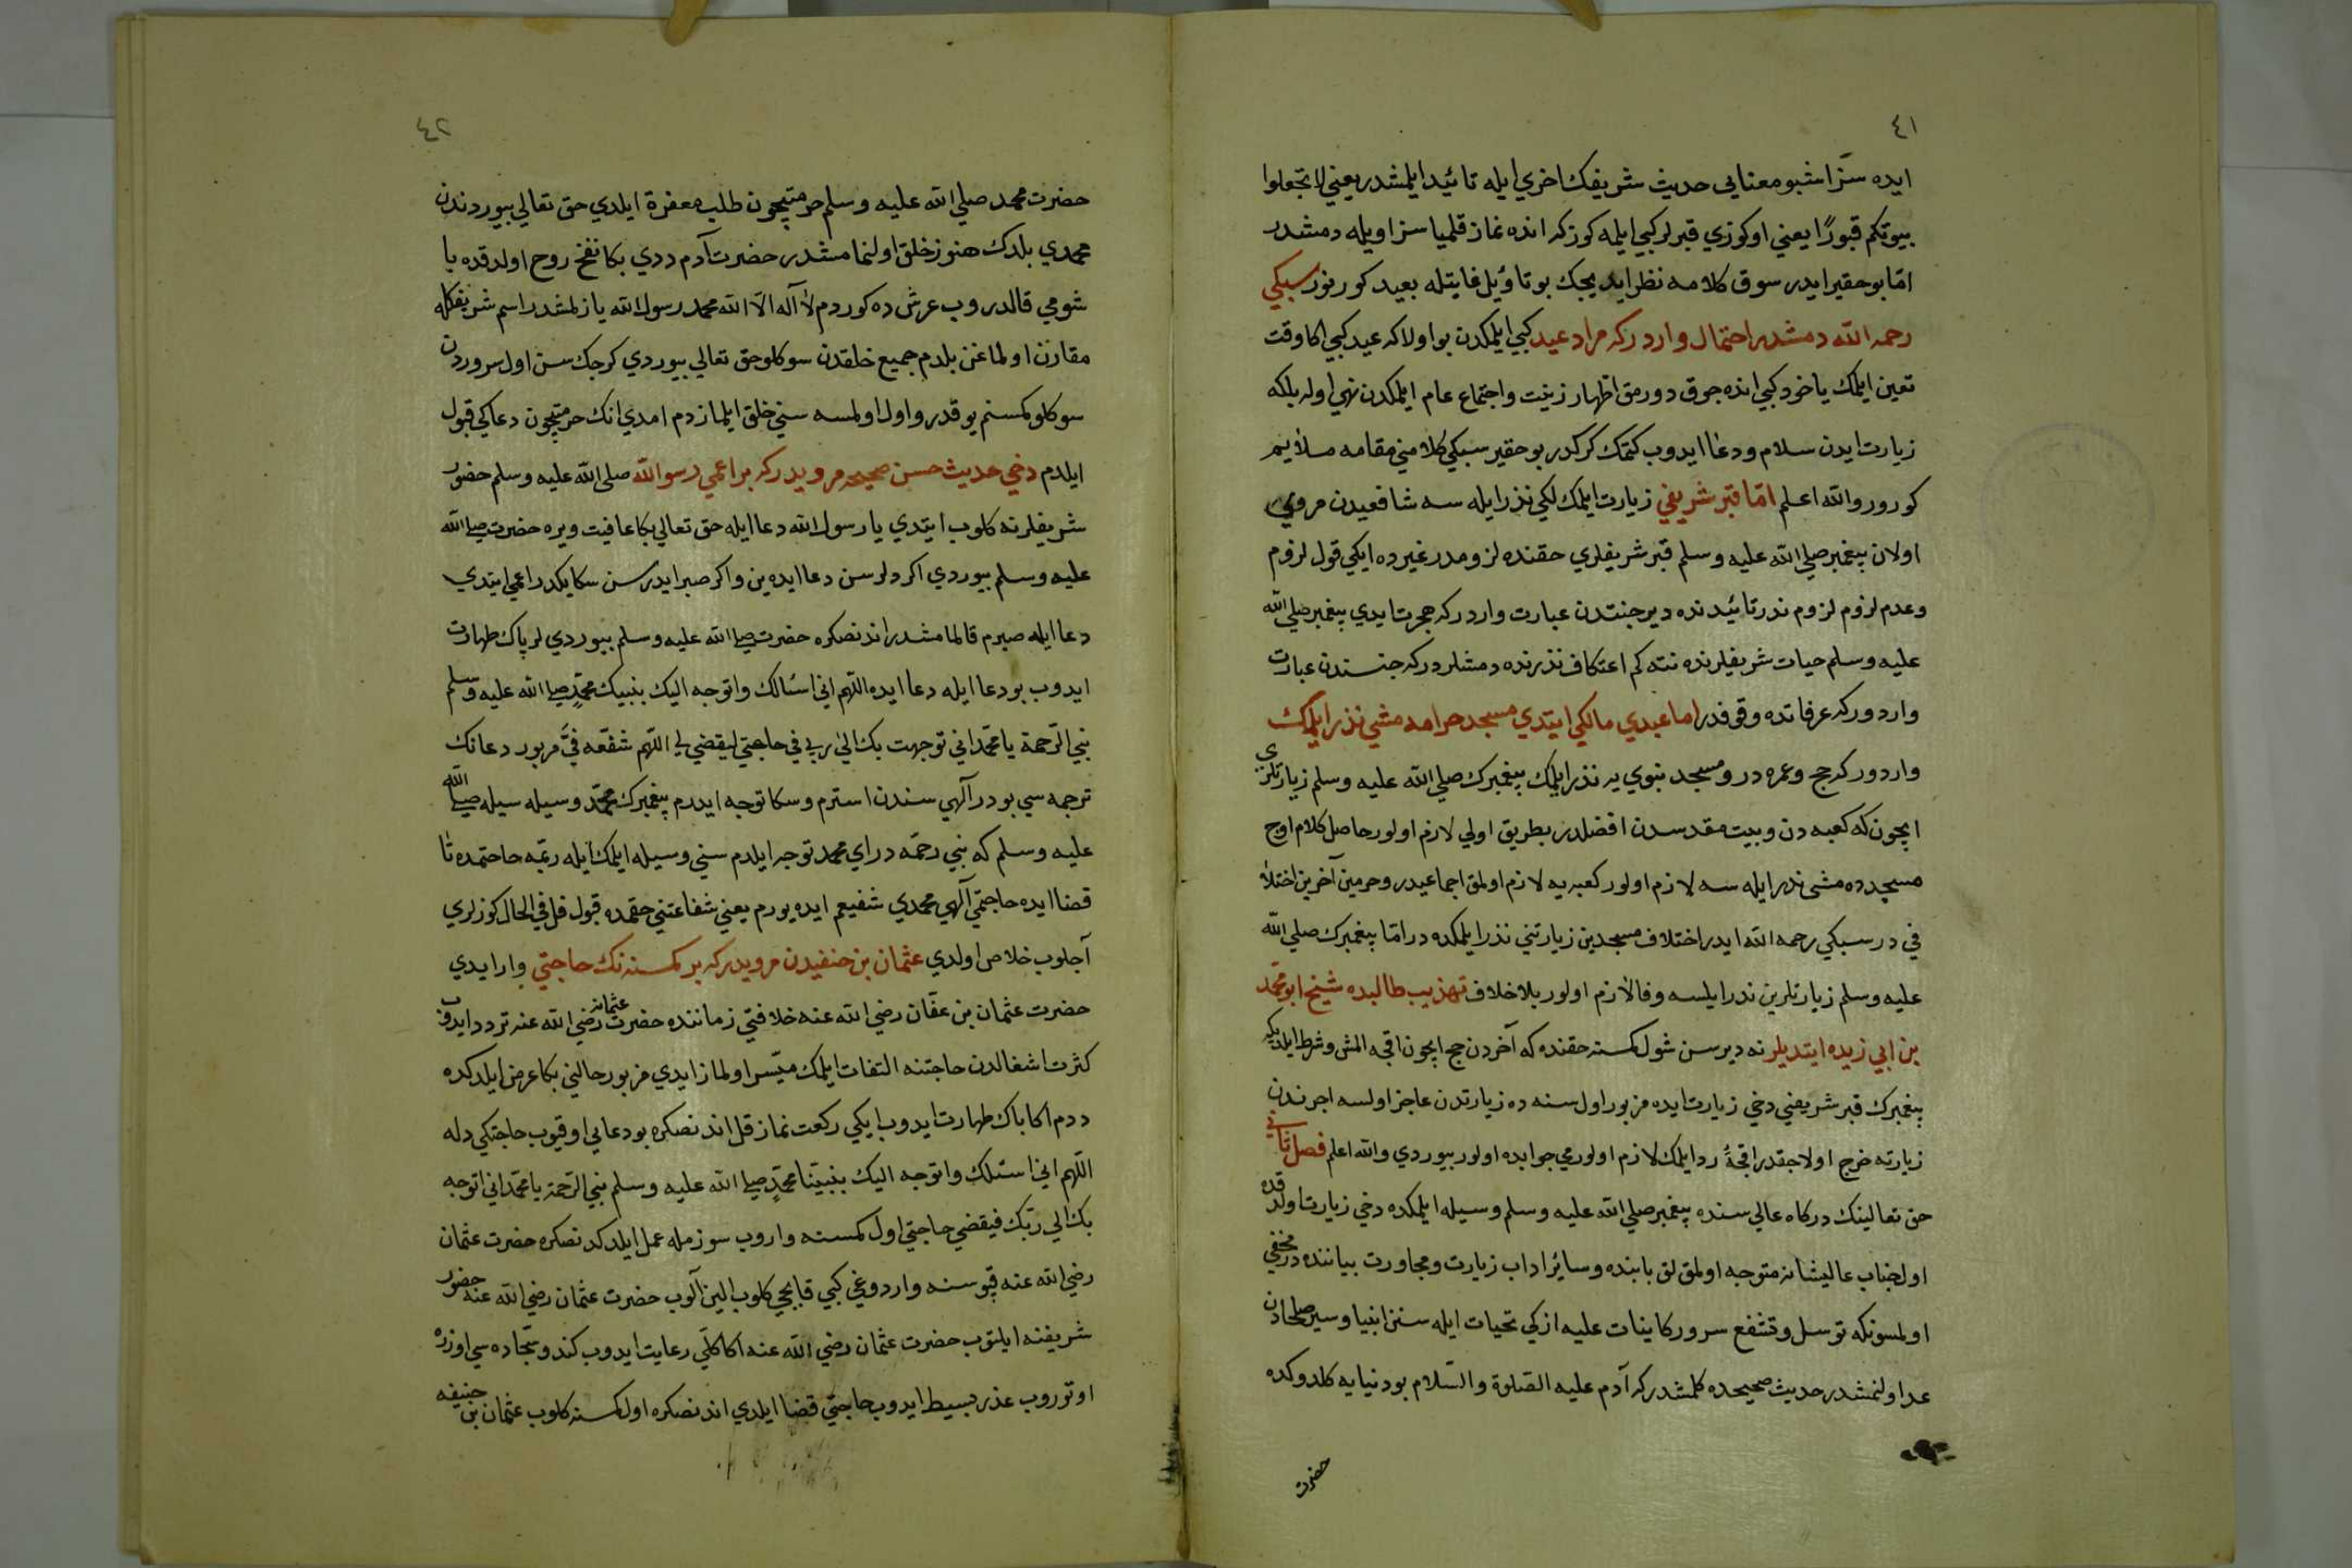 ٤١
ايده سز اشبو معنايى حديث شريفك اخرى ايله تائيد ايلمشدر يعني لا تجعلوا
بيوتكم قبورًا يعني اوكوزي قبرلر كبي ايلمه كوزكه انده نماز قلميا سز اويله دمشدر
امّا بو حقير ايدر سوق كلامه نظر ايديجك بو تاويل غايتله بعيد كورنور سبكي
رحمه الله دمشدر احتمال وارد ركه مراد عيد كبي ايلمكدن بو اولا كه عيد كبي اكا وقت
تعين ايلمك يا خود كبي انده جوق دورمق اظهار زينت و اجتماع عام ايلمكدن نهي اوله بلكه
زيارت ايدن سلام و دعا ايدوب كتمك كركدر بو حقير سبكي كلامني مقامه ملايم
كورور والله اعلم امّا قبر شريفي زيارت ايلمك لكي نذر ايله سه شافعيدن مروي
اولان پيغمبر صلي الله عليه وسلم قبر شريفلري حقنده لزومدر غيرده ايكي قول لزوم
وعدم لزوم لزوم ندر تائيدنده دير جنتدن عبارت واردركه هجرت ايدي پيغمبر صلي الله
عليه وسلم حيات شريفلرنده نته كم اعتكاف نذرنده دمشلردركه جنسندن عبادت
وارد وركه عرفاتده وقفدر اما عبدي مالكي ايتدي مسجد حرامه مشي نذر ايلمك
وارد وركه حج وعمره در ومسجد نبوي يه نذر ايلمك پيغمبرك صلي الله عليه وسلم زيارتلري
ايچون كه كعبه دن و بيت مقدسدن افضلدر بطريق اولي لازم اولور حاصل كلام اوج
مسجده مشى نذر ايله سه لازم اولور كعبه يه لازم اولمق اجماعيدر وحرمين آخرين اختلا
في در سبكي رحمه الله ايدر اختلاف مسجدين زيارتني نذر ايلمكده در امّا پيغمبرك صلي الله
عليه وسلم زيارتلرين ندر ايلسه وفا لازم اولور بلا خلاف تهذيب طالبده شيخ ابو محمّد
بن ابي زيده ايتديلر نه ديرسن شول كمسنه حقنده كه آخردن حج ايچون اقچه المش وشرط ايلديكه
پيغمبرك قبر شريفني دخي زيارت ايده مزبور اول سنه ده زيارتدن عاجز اولسه اجرندن
زيارته خرج اولاجقدر اقچهٔ رد ايلمك لازم اولورمي جوابده اولور بيوردي والله اعلم فصل ثاني
حق تعالينك دركاه عالي سنده پيغمبر صلي الله عليه وسلم وسيله ايلمكده دخي زيارت اولدقده
اول جناب عاليشانه متوجه اولمق لق بابنده وسائر اداب زيارت ومجاورت بياننده در مخفي
اولمسونكه توسل وتشفع سرور كاينات عليه ازكي تحيات ايله سنن انبيا وسير صلحادن
عد اولنمشدر حديث صحيحده كلمشدركه آدم عليه الصلوة والسّلام بو دنيايه كلدوكده
حضرت
٤٢
حضرت محمد صلي الله عليه وسلم حرمتيچون طلب مغفرة ايلدي حق تعالي بيوردي ندن
محمدي بلدك هنوز خلق اولنمامشدر حضرت آدم ددي بكا نفخ روح اولدقده با
شومي قالدروب عرش ده كوردم لا آله الّا الله محمد رسول الله يازلمشدر اسم شريفكله
مقارن اولماغن بلدم جميع خلقدن سوكلو حق تعالي بيوردي كرجك سن اول سروردن
سوكلو كمسنم يوقدر و اول اولمسه سني خلق ايلمازدم امدي انك حرمتيچون دعاكي قبول
ايلدم دخي حديث حسن صحيحه مرويدركه بر اعمي رسوالله صلي الله عليه وسلم حضور
شريفلرنه كلوب ايتدي يا رسول الله دعا ايله حق تعالي بكا عافيت ويره حضرت صلي الله
عليه وسلم بيوردي اكر دلرسن دعا ايده ين و اكر صبر ايدرسن سكا يكدر اعمي ايتدي
دعا ايله صبرم قالمامشدر اندنصكره حضرت صلي الله عليه وسلم بيورديلر پاك طهارت
ايدوب بو دعا ايله دعا ايده اللّهم اني اسئالك واتوجه اليك بنبيك محمّدٍ صلي الله عليه وسلم
نبي الرّحمة يا محمّد اني توجهت بك الىٰ ربي في حاجتي ليقضي لي اللّهم شفّعه فيَّ مزبور دعانك
ترجمه سي بودر آلهي سندن استرم وسكا توجه ايدرم پيغمبرك محمّد وسيله سيله صلي الله
عليه وسلم كه نبي رحمّه در اي محمد توجه ايلدم سني وسيله ايلمك ايله ربّمه حاجتمده تا
قضا ايده حاجتمي آلهي محمدي شفيعم ايده يورم يعني شفاعتني حقمده قبول قل في الحال كوزلري
آجلوب خلاص اولدي عثمان بن حنفيدن مرويدركه بر كمسنه نك حاجتي وار ايدي
حضرت عثمان بن عفّان رضي الله عنه خلافتي زماننده حضرت عثمانه رضي الله عنه تردد ايدوب
كثرت اشغالدن حاجتنه التفات ايلمك ميّسر اولماز ايدي مزبور حالني بكا عرض ايلدكده
ددم اكا پاك طهارت ايدوب ايكي ركعت نماز قل اندنصكره بو دعايي اوقيوب حاجتكي دله
اللّهم اني اسئلك واتوجه اليك بنبيّنا محمّدٍ صلي الله عليه وسلم نبي الرّحمة يا محمّد اني اتوجه
بك الي ربّك فيقضي حاجتي اول كمسنه واروب سوزمله عمل ايلدكدنصكره حضرت عثمان
رضي الله عنه قپوسنه واردوغي كبي قاپچي كلوب الين آلوب حضرت عثمان رضي الله عنه حضور
شريفنه ايلتوب حضرت عثمان رضي الله عنه اكا كلّي رعايت ايدوب كندو سجّاده سي اوزره
اوتوروب عذر بسيط ايدوب حاجتي قضا ايلدي اندنصكره اول كمسنه كلوب عثمان بن حنيفه